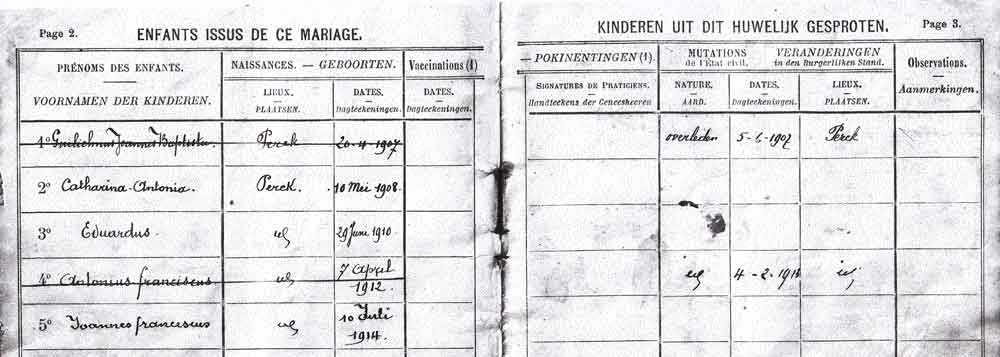 Page 2.
ENFANTS ISSUS DE CE MARIAGE.
PRÉNOMS DES ENFANTS.
VOORNAMEN DER KINDEREN.
NAISSANCES. — GEBOORTEN.
LIEUX.
PLAATSEN.
DATES.
Dagteekeningen.
Vaccinations (1)
DATES.
Dagteekeningen.
1° Guilielmus Joannes Baptista Perck 20-4-1907
2° Catharina-Antonia. Perck. 10 Mei 1908.
3° Eduardus. id 29 Juni 1910.
4° Antonius franciscus id 7 April 1912.
5° Joannes franciscus id 10 Juli 1914.
KINDEREN UIT DIT HUWELIJK GESPROTEN.
Page 3.
— POKINENTINGEN (1).
SIGNATURES DE PRATICIENS.
Handteekens der Geneesheeren
MUTATIONS VERANDERINGEN
de l'État civil. in den Burgerlijken Stand.
NATURE.
AARD.
DATES.
Dagteekeningen.
LIEUX.
PLAATSEN.
Observations.
Aanmerkingen.
overleden 5-6-1907 Perck
id 4-2-191 id